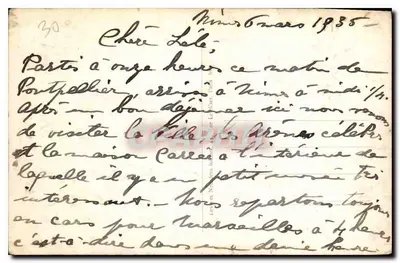 30
Nimes 6 mars 1936 -
Chère Lélé,
Partis à onze heures ce matin de
Montpellier, arrivés à Nimes à midi 1/4.
Après un bon déjeuner ici nous venons
de visiter la ville, les arènes célèbres
et la maison Carrée à l'intérieur de
laquelle il y a un petit musée très
intéressant. - Nous repartons toujours
en cars pour Marseilles à 4 heures
c'est-à-dire dans une demie heure